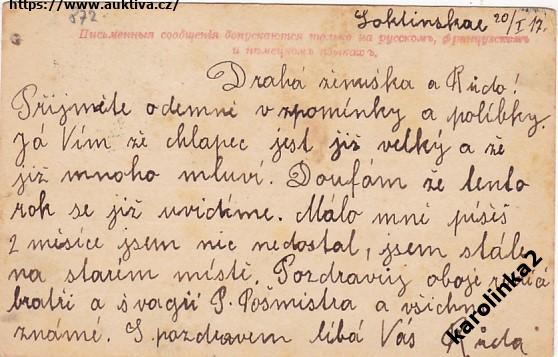 https://www.auktiva.cz/
872
Soklinskae 20/I 17.
Письменныя сообщенія допускаются только на русскомъ, французскомъ
и нѣмецкомъ языкахъ.
Drahá ženuška a Rúdo!
Přijměte odemne vzpomínky a políbky.
Já Vím že chlapec jest již velký a že
již mnoho mluví. Doufám že tento
rok se již uvidíme. Málo mně píšeš
2 měsíce jsem nic nedostal, jsem stále
na starém místě. Pozdravuj oboje
bratři a švagři P. Pošmistra a všichny
známé. S pozdravem líbá Vás Rúda
karolinka2